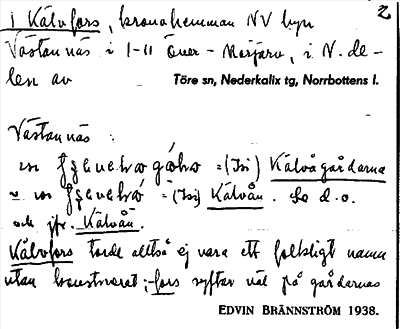 2
i Kälvfors, kronohemman NV byn
Västannäs i 1-11 Över-Morjärv, i N. de-
len av Töre sn, Nederkalix tg, Norrbottens l.
Västannäs :
= (I si) Kälvågårdarna
= (I si) Kälvån. Se d.o.
och jfr. Kälvån.
Kälvfors torde alltså ej vara ett folkligt namn
utan konstruerat; -fors syftar väl på gårdarnas
EDVIN BRÄNNSTRÖM 1938.